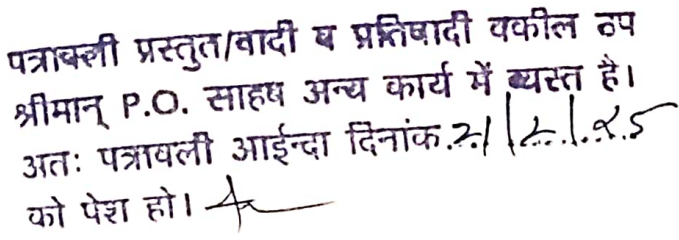 पत्रावली प्रस्तुत/वादी व प्रतिवादी वकील उप
श्रीमान् P.O. साहब अन्य कार्य में व्यस्त है।
अतः पत्रावली आईन्दा दिनांक.21/2/.25
को पेश हो।